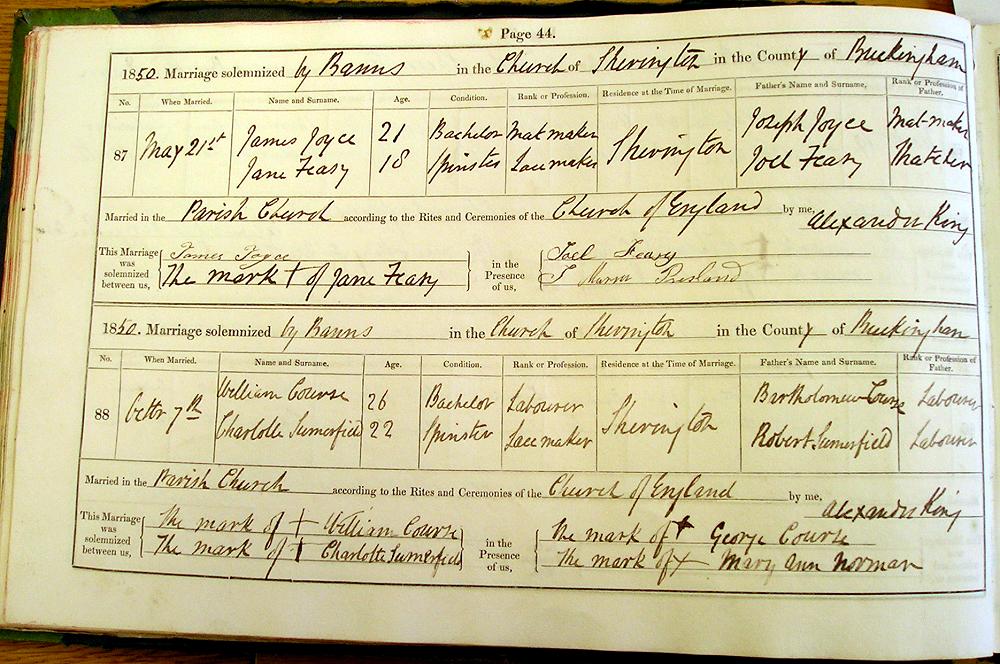 Page 44.
1850. Marriage solemnized by Banns in the Church of Sherington in the County of Buckingham
No. When Married. Name and Surname. Age. Condition. Rank or Profession. Residence at the Time of Marriage. Father's Name and Surname. Rank or Profession of Father.
James Joyce 21 Bachelor Mat maker Joseph Joyce Mat-maker
87 May 21st Sherington
Jane Feasy 18 Spinster Lace maker Joel Feasy Thatcher
Married in the Parish Church according to the Rites and Ceremonies of the Church of England by me, Alexander King
This Marriage was solemnized between us, James Joyce in the Presence of us, Joel Feasy
The mark + of Jane Feasy
1850. Marriage solemnized by Banns in the Church of Sherington in the County of Buckingham
No. When Married. Name and Surname. Age. Condition. Rank or Profession. Residence at the Time of Marriage. Father's Name and Surname. Rank or Profession of Father.
William Course 26 Bachelor Labourer Bartholomew Course Labourer
88 Octbr 7th Sherington
Charlotte Sumerfield 22 Spinster Lace maker Robert Sumerfield Labourer
Married in the Parish Church according to the Rites and Ceremonies of the Church of England by me, Alexander King
This Marriage was solemnized between us, The mark of + William Course in the Presence of us, The mark of + George Course
The mark of + Charlotte Sumerfield The mark of + Mary Ann Norman